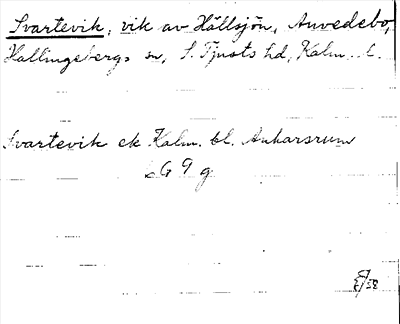 Svartevik, vik av Hällsjön, Anvedebo,
Hallingebergs sn, S. Tjusts hd, Kalm. l.
Svartevik ek Kalm. bl. Ankarsrum
6 G 9 g